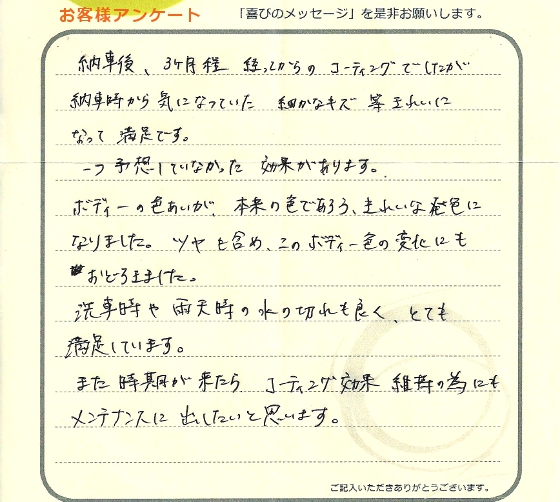 お客様アンケート 「喜びのメッセージ」を是非お願いします。
納車後、3ヶ月程 経ってからの コーティングでしたが
納車時から気になっていた 細かなキズ 等 きれいに
なって 満足です。
一つ予想していなかった 効果があります。
ボディーの色あいが、本来の色であろう、きれいな発色に
なりました。ツヤも含め、このボディー色の変化にも
おどろきました。
洗車時や 雨天時の水の切れも良く、とても
満足しています。
また 時期が来たら コーティング効果 維持の為にも
メンテナンスに 出したいと思います。
ご記入いただきありがとうございます。